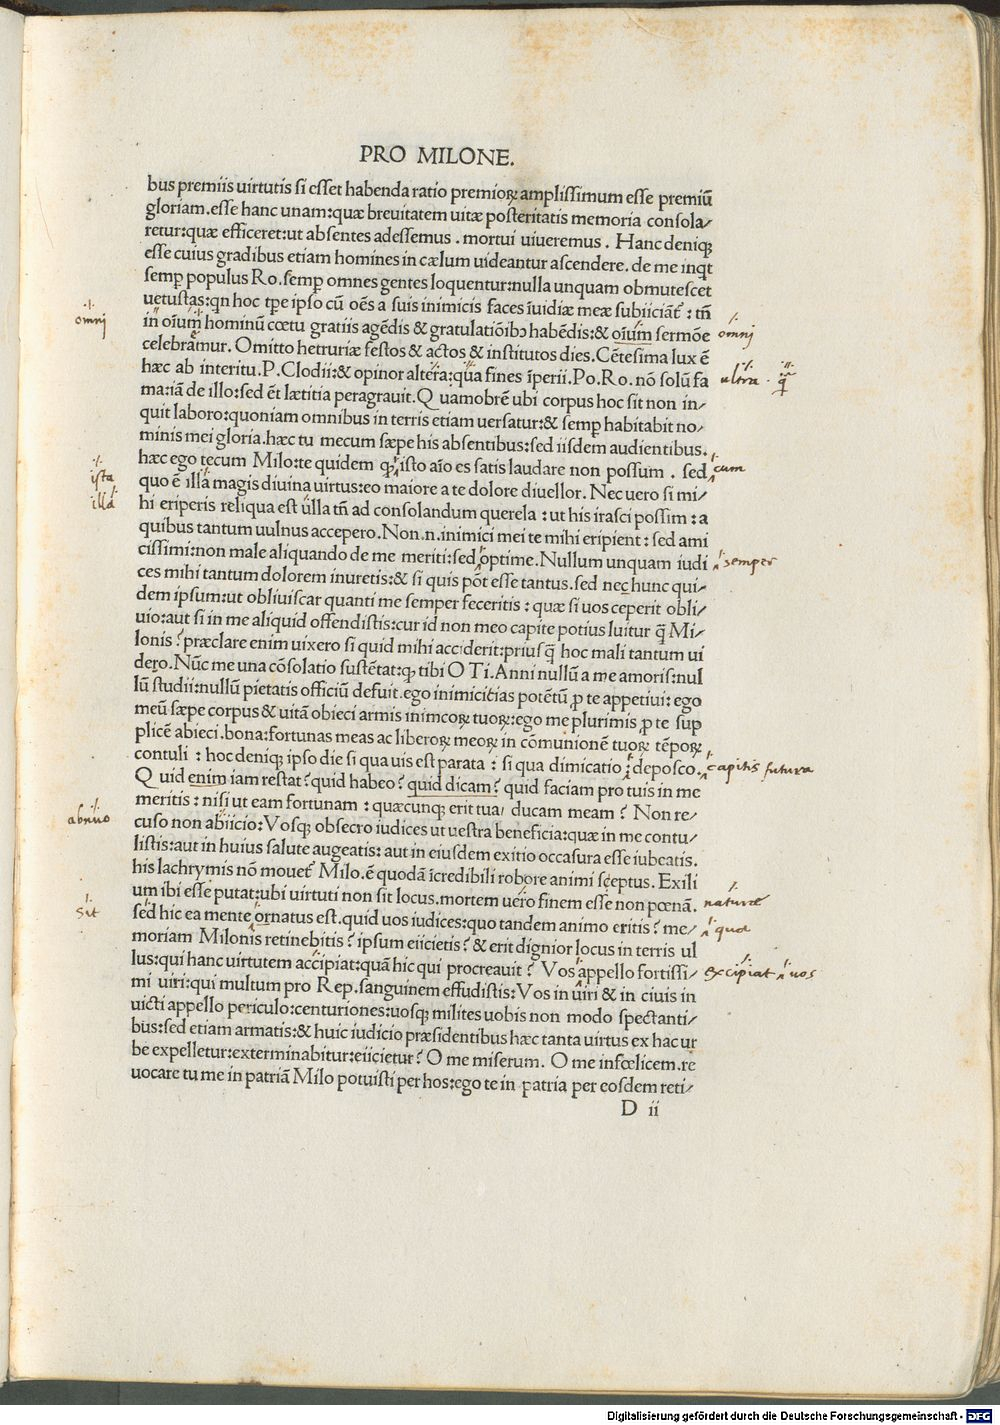 PRO MILONE.
bus premiis uirtutis si esset habenda ratio premioꝝ amplissimum esse premiū
gloriam.esse hanc unam:quæ breuitatem uitæ posteritatis memoria consola/
retur:quæ efficeret:ut absentes adessemus . mortui uiueremus . Hanc deniqꝫ
esse cuius gradibus etiam homines in cælum uideantur ascendere. de me inqt
semꝑ populus Ro.semꝑ omnes gentes loquentur:nulla unquam obmutescet
uetustas:qn hoc tꝑe ipso cū oēs a suis inimicis faces īuidiæ meæ subiiciāt᷑ : tñ
omni
in oīum hominū cœtu gratiis agēdis & gratulatiōibꝫ habēdis:& oīum sermōe
omni
celebramur. Omitto hetruriæ festos & actos & institutos dies. Cētesima lux ē
hæc ab interitu.P.Clodii:& opinor altera:qua fines īperii.Po.Ro.nō solū fa
ultra . q̄
ma:iā de illo:sed ēt lætitia peragrauit.Q uamobrē ubi corpus hoc sit non in/
quit laboro:quoniam omnibus in terris etiam uersatur:& semꝑ habitabit no/
minis mei gloria.hæc tu mecum sæpe his absentibus:sed iisdem audientibus.
hæc ego tecum Milo:te quidem qꝫ isto aīo es satis laudare non possum . sed
cum
ista
quo ē illa magis diuina uirtus:eo maiore a te dolore diuellor. Nec uero si mi/
illa
hi eriperis reliqua est ulla tñ ad consolandum querela : ut his irasci possim : a
quibus tantum uulnus accepero. Non.n.inimici mei te mihi eripient : sed ami
cissimi:non male aliquando de me meriti:sed optime. Nullum unquam iudi
semper
ces mihi tantum dolorem inuretis:& si quis pōt esse tantus.sed nec hunc qui/
dem ipsum:ut obliuiscar quanti me semper feceritis : quæ si uos ceperit obli/
uio:aut si in me aliquid offendistis:cur id non meo capite potius luitur q̄ Mi/
lonis? præclare enim uixero si quid mihi acciderit:priusq̄ hoc mali tantum ui
dero. Nūc me una cōsolatio sustētat:qꝫ tibi O Ti. Anni nullū a me amoris:nul
lū studii:nullū pietatis officiū defuit.ego inimicitias potētū ꝓ te appetiui: ego
meū sæpe corpus & uitā obieci armis inimcoꝝ tuoꝝ:ego me plurimis ꝓ te sup
plicē abieci.bona:fortunas meas ac liberoꝝ meoꝝ in cōmunionē tuoꝝ tēpoꝝ
contuli : hoc deniqꝫ ipso die si qua uis est parata : si qua dimicatio : deposco.
capitis futura
Q uid enim iam restat? quid habeo? quid dicam? quid faciam pro tuis in me
meritis : nisi ut eam fortunam : quæcunqꝫ erit tua/ ducam meam? Non re/
abnuo
cuso non abiicio:Vosqꝫ obsecro iudices ut uestra beneficia:quæ in me contu/
listis:aut in huius salute augeatis: aut in eiusdem exitio occasura esse iubeatis.
his lachrymis nō mouet᷑ Milo.ē quodā īcredibili robore animi sceptus. Exili
um ibi esse putat:ubi uirtuti non sit locus.mortem uero finem esse non pœnā.
naturæ
sit
sed hic ea mente ornatus est.quid uos iudices:quo tandem animo eritis? me/
qua
moriam Milonis retinebitis? ipsum eiicietis? & erit dignior locus in terris ul
lus:qui hanc uirtutem accipiat:quā hic qui procreauit? Vos appello fortissi/
excipiat uos
mi uiri:qui multum pro Rep.sanguinem effudistis: Vos in uiri & in ciuis in
uicti appello periculo:centuriones:uosqꝫ milites uobis non modo spectanti/
bus:sed etiam armatis:& huic iudicio præsidentibus hæc tanta uirtus ex hac ur
be expelletur:exterminabitur:eiicietur? O me miserum. O me infœlicem.re
uocare tu me in patriā Milo potuisti per hos:ego te in patria per eosdem reti/
D ii
Digitalisierung gefördert durch die Deutsche Forschungsgemeinschaft - DFG